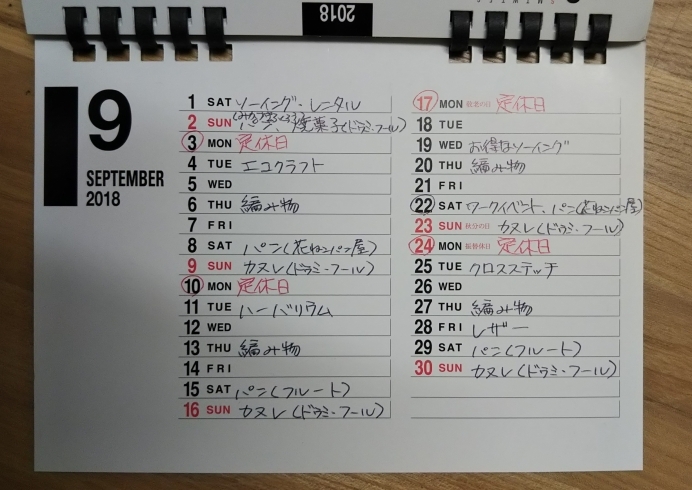 2018
9
SEPTEMBER
2018
1 SAT ソーイング・レンタル
2 SUN パン、焼菓子(ドゥミ・フール)
3 MON 定休日
4 TUE エコクラフト
5 WED
6 THU 編み物
7 FRI
8 SAT パン(花ねこパン屋)
9 SUN カヌレ(ドゥミ・フール)
10 MON 定休日
11 TUE ハーバリウム
12 WED
13 THU 編み物
14 FRI
15 SAT パン(フルート)
16 SUN カヌレ(ドゥミ・フール)
17 MON 敬老の日 定休日
18 TUE
19 WED お得なソーイング
20 THU 編み物
21 FRI
22 SAT ワークイベント、パン(花ねこパン屋)
23 SUN 秋分の日 カヌレ(ドゥミ・フール)
24 MON 振替休日 定休日
25 TUE クロスステッチ
26 WED
27 THU 編み物
28 FRI レザー
29 SAT パン(フルート)
30 SUN カヌレ(ドゥミ・フール)